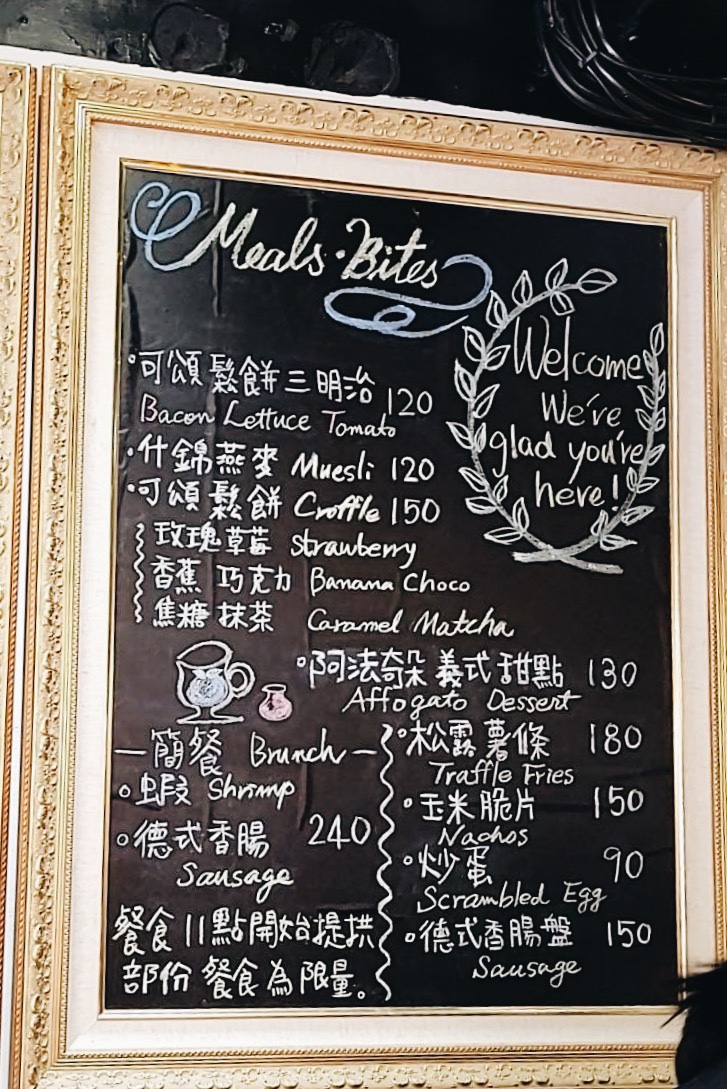 Meals · Bites
Welcome
We're
glad you're
here!
可頌鬆餅三明治 120
Bacon Lettuce Tomato
什錦燕麥 Muesli 120
可頌鬆餅 Croffle 150
玫瑰草莓 Strawberry
香蕉巧克力 Banana Choco
焦糖抹茶 Caramel Matcha
阿法奇朵義式甜點 130
Affogato Dessert
簡餐 Brunch
蝦 Shrimp
德式香腸 240
Sausage
餐食11點開始提拱
部份餐食為限量。
松露薯條 180
Traffle Fries
玉米脆片 150
Nachos
炒蛋 90
Scrambled Egg
德式香腸盤 150
Sausage